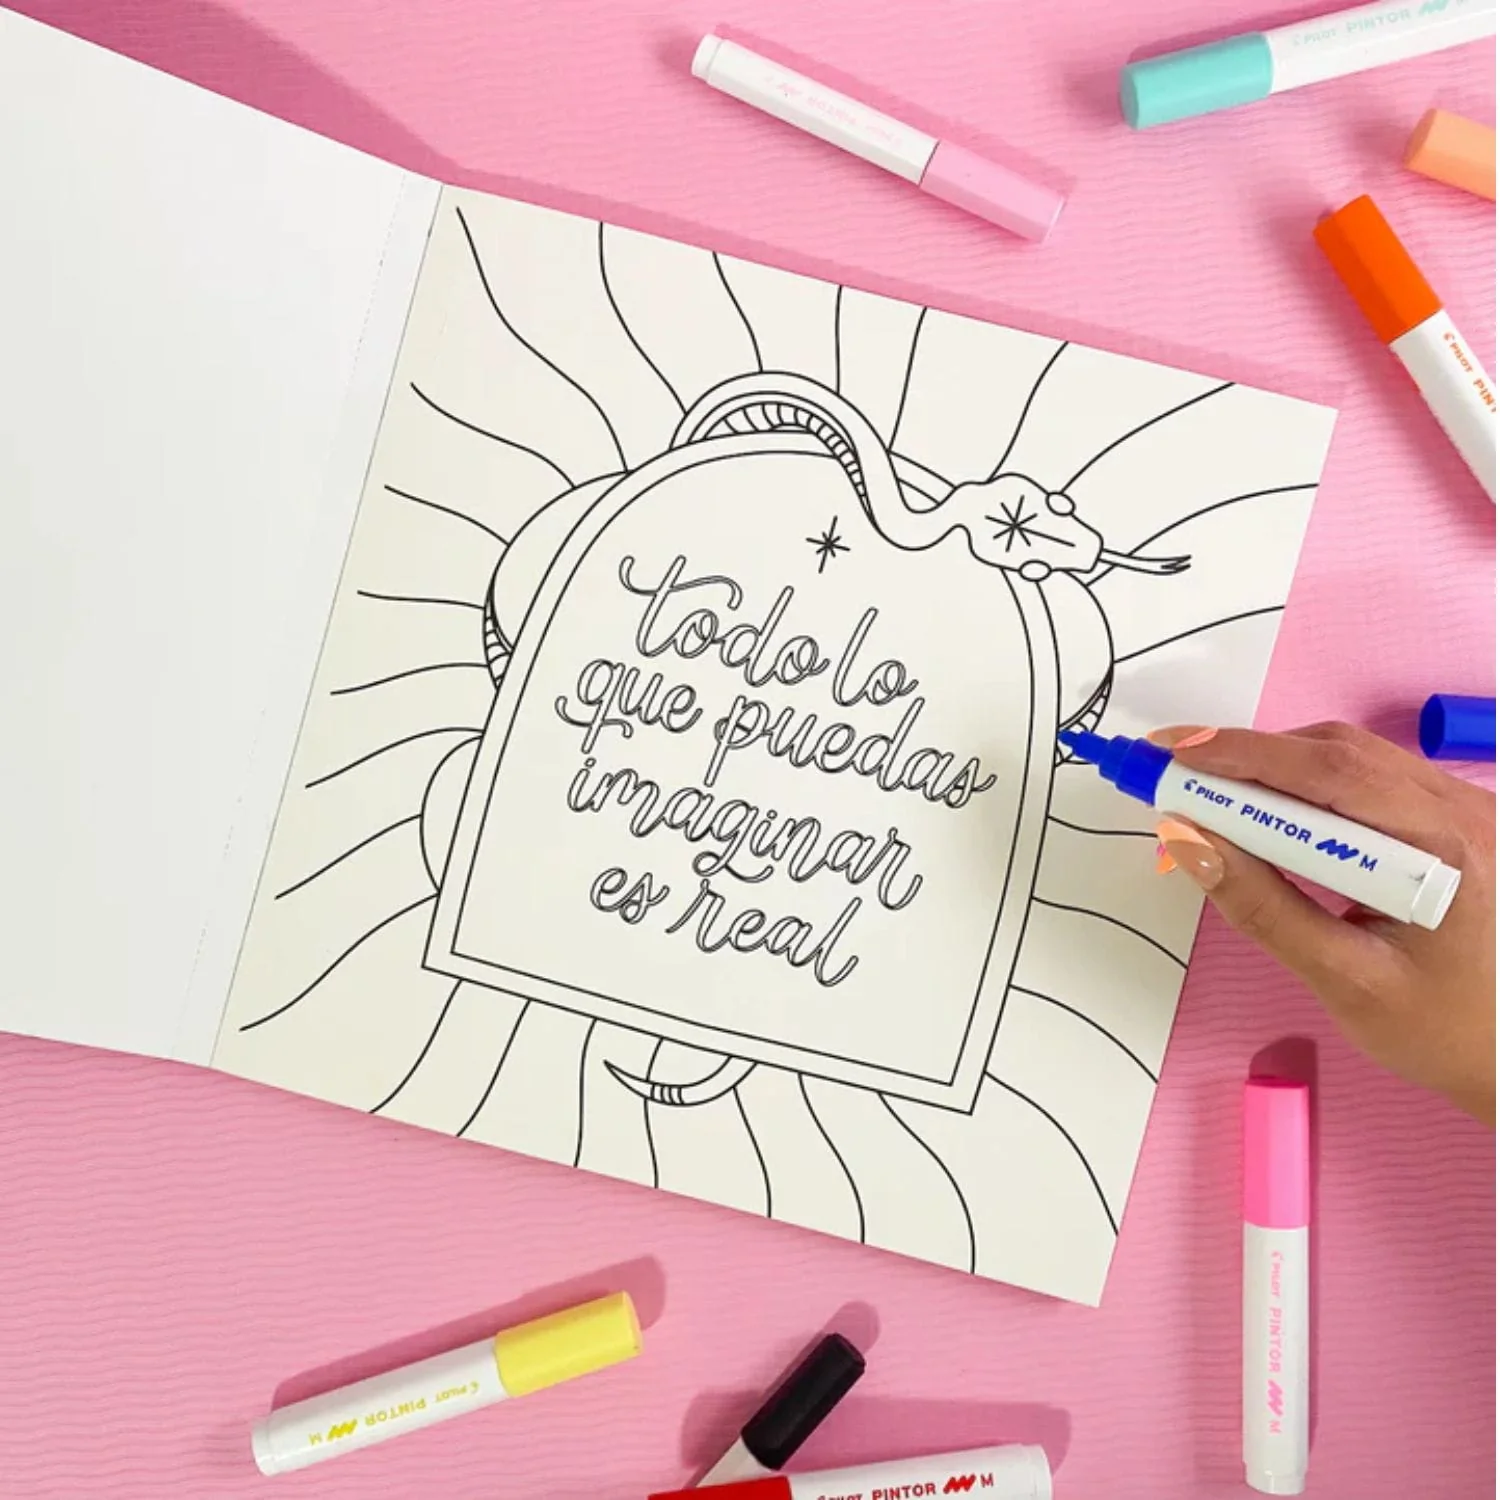 PILOT PINTOR M
PILOT PINTOR
PILOT PINT
todo lo
que puedas
imaginar
es real
PILOT PINTOR M
PILOT PINTOR M
PILOT PINTOR M
PILOT PINTOR M